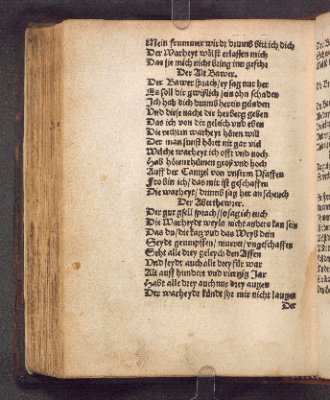 Mein frummer wirdt drumb bitt ich dich
Der Warheyt wölst erlassen mich
Das sie mich nicht bring inn gefehr
Der Alt Bawer.
Der Bawer sprach/ ey sag nur her
Es soll dir gwißlich sein ohn schaden
Ich hab dich drumb herein geladen
Und diese nacht die herberg geben
Das ich von dir geleich und eben
Die rechten warheyt hören will
Der man sunst höret nit gar viel
Welche warheyt ich offt und noch
Hab hören rhümen groß und hoch
Auff der Cantzel von unserm Pfaffen
Fro bin ich/ das mit ist geschaffen
Die warheyt/ drumb sag her an schewch
Der Abenthewrer.
Der gut gsell sprach/ so sag ich euch
Die Warheyde weyls nicht anders kan sein
Das du/ die katz und das Weyb dein
Seyde grumpffen/ murret/ ungeschaffen
Seht alle drey geleych den Affen
Und seydt auch alle drey für war
Alt auff hundert und viertzig Jar
Habt alle drey auch nur drey augen
Der warheyde künde jhr mir nicht laugen
Der